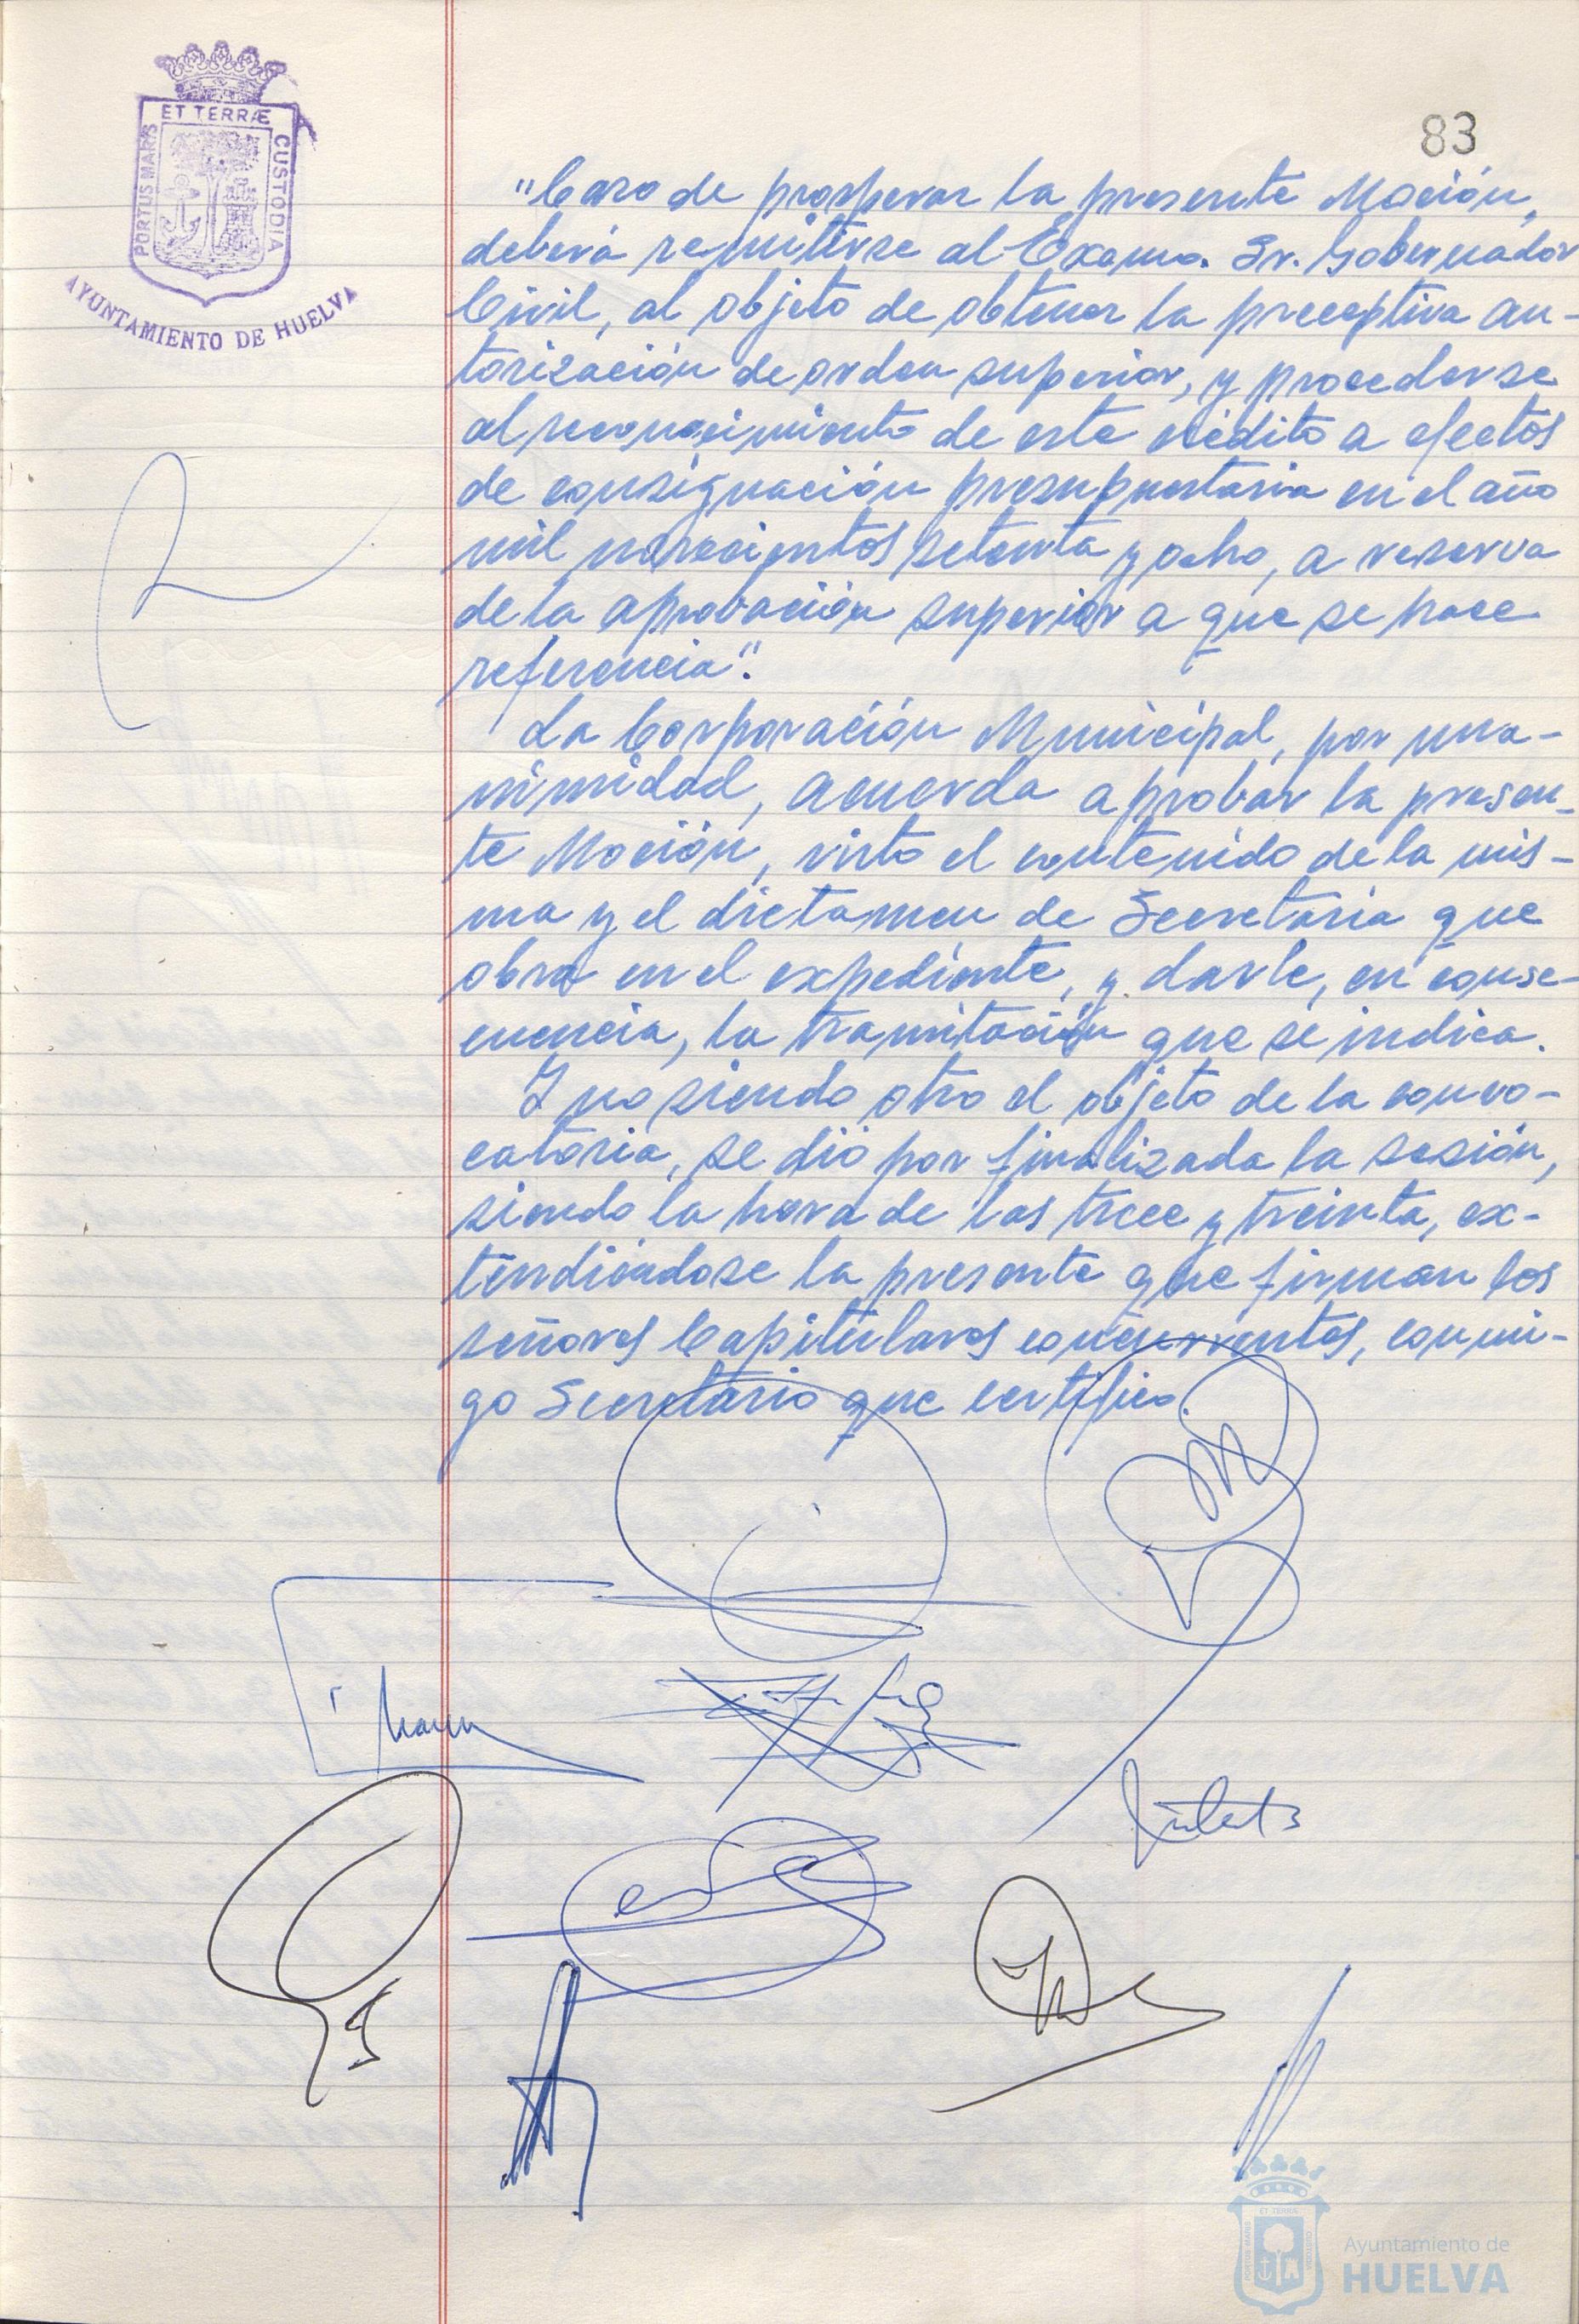 ET TERRÆ
PORTUS MARIS
CUSTODIA
AYUNTAMIENTO DE HUELVA
83
"Caso de prosperar la presente Moción,
deberá remitirse al Excmo. Sr. Gobernador
Civil, al objeto de obtener la preceptiva au-
torización de orden superior, y procederse
al reconocimiento de este crédito a efectos
de consignación presupuestaria en el año
mil novecientos setenta y ocho, a reserva
de la aprobación superior a que se hace
referencia".
La Corporación Municipal, por una-
nimidad, acuerda aprobar la presen-
te Moción, visto el contenido de la mis-
ma y el dictamen de Secretaría que
obra en el expediente, y darle, en conse-
cuencia, la tramitación que se indica.
Y no siendo otro el objeto de la convo-
catoria, se dió por finalizada la sesión,
siendo la hora de las trece y treinta, ex-
tendiéndose la presente que firman los
señores Capitulares concurrentes, conmi-
go Secretario que certifico.
Ayuntamiento de
HUELVA